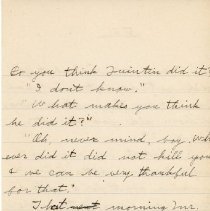 Do you think Quintin did it?
"I don't know."
"What makes you think
he did it?"
"Oh, never mind, boy. Who
ever did it did not kill you
& we can be very thankful
for that."
That morning Mr.